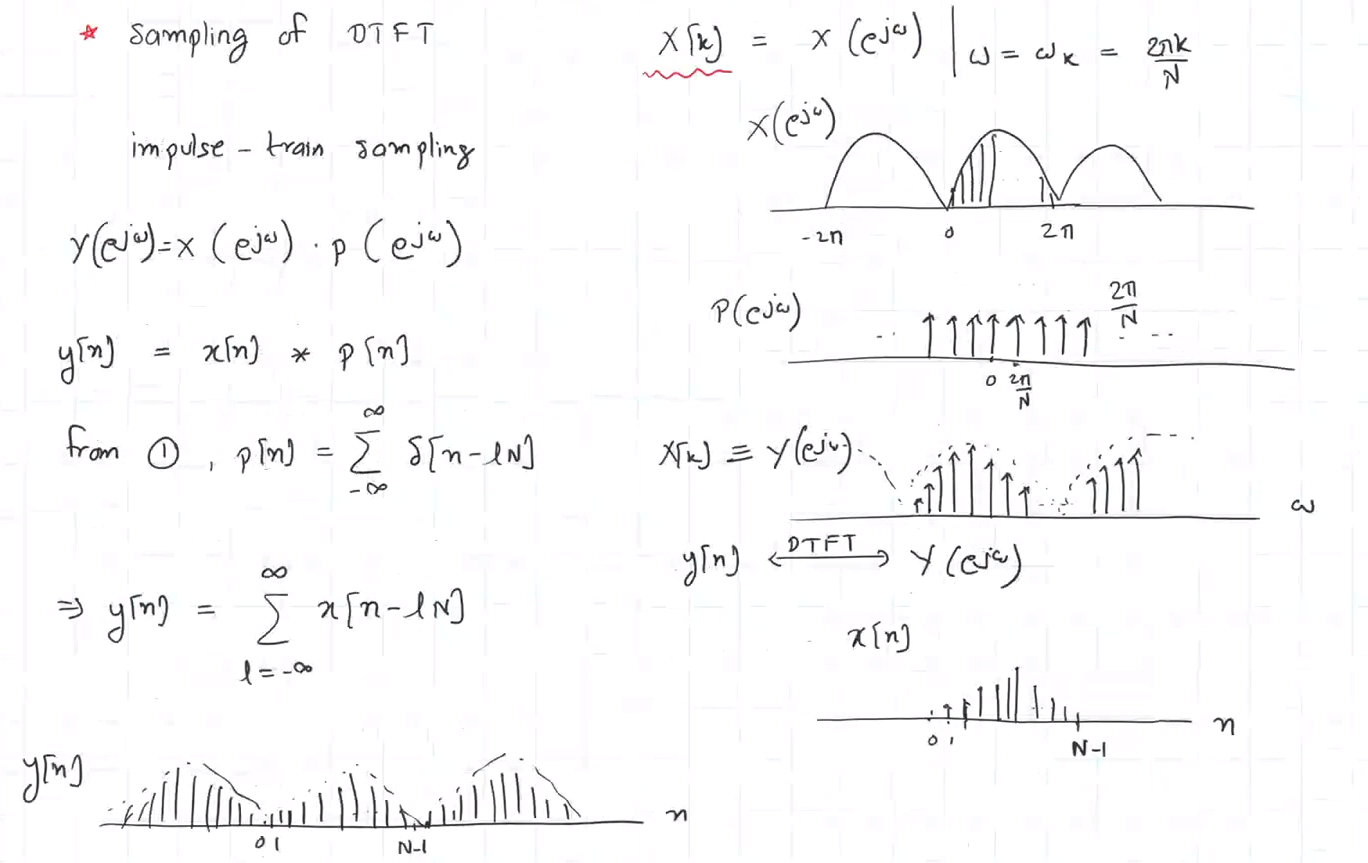 * Sampling of DTFT
impulse - train sampling
Y(e^{jω}) = X(e^{jω}) · P(e^{jω})
y[n] = x[n] * p[n]
from ①, p[n] = ∑_{-∞}^{∞} δ[n-lN]
⇒ y[n] = ∑_{l=-∞}^{∞} x[n-lN]
y[n]
0 1 N-1 n
X[k] = X(e^{jω}) | ω = ω_k = 2πk/N
X(e^{jω})
-2π 0 2π
P(e^{jω}) 2π/N
0 2π/N
X[k] ≡ Y(e^{jω})
ω
y[n] ⟷ DTFT Y(e^{jω})
x[n]
0 1 N-1 n